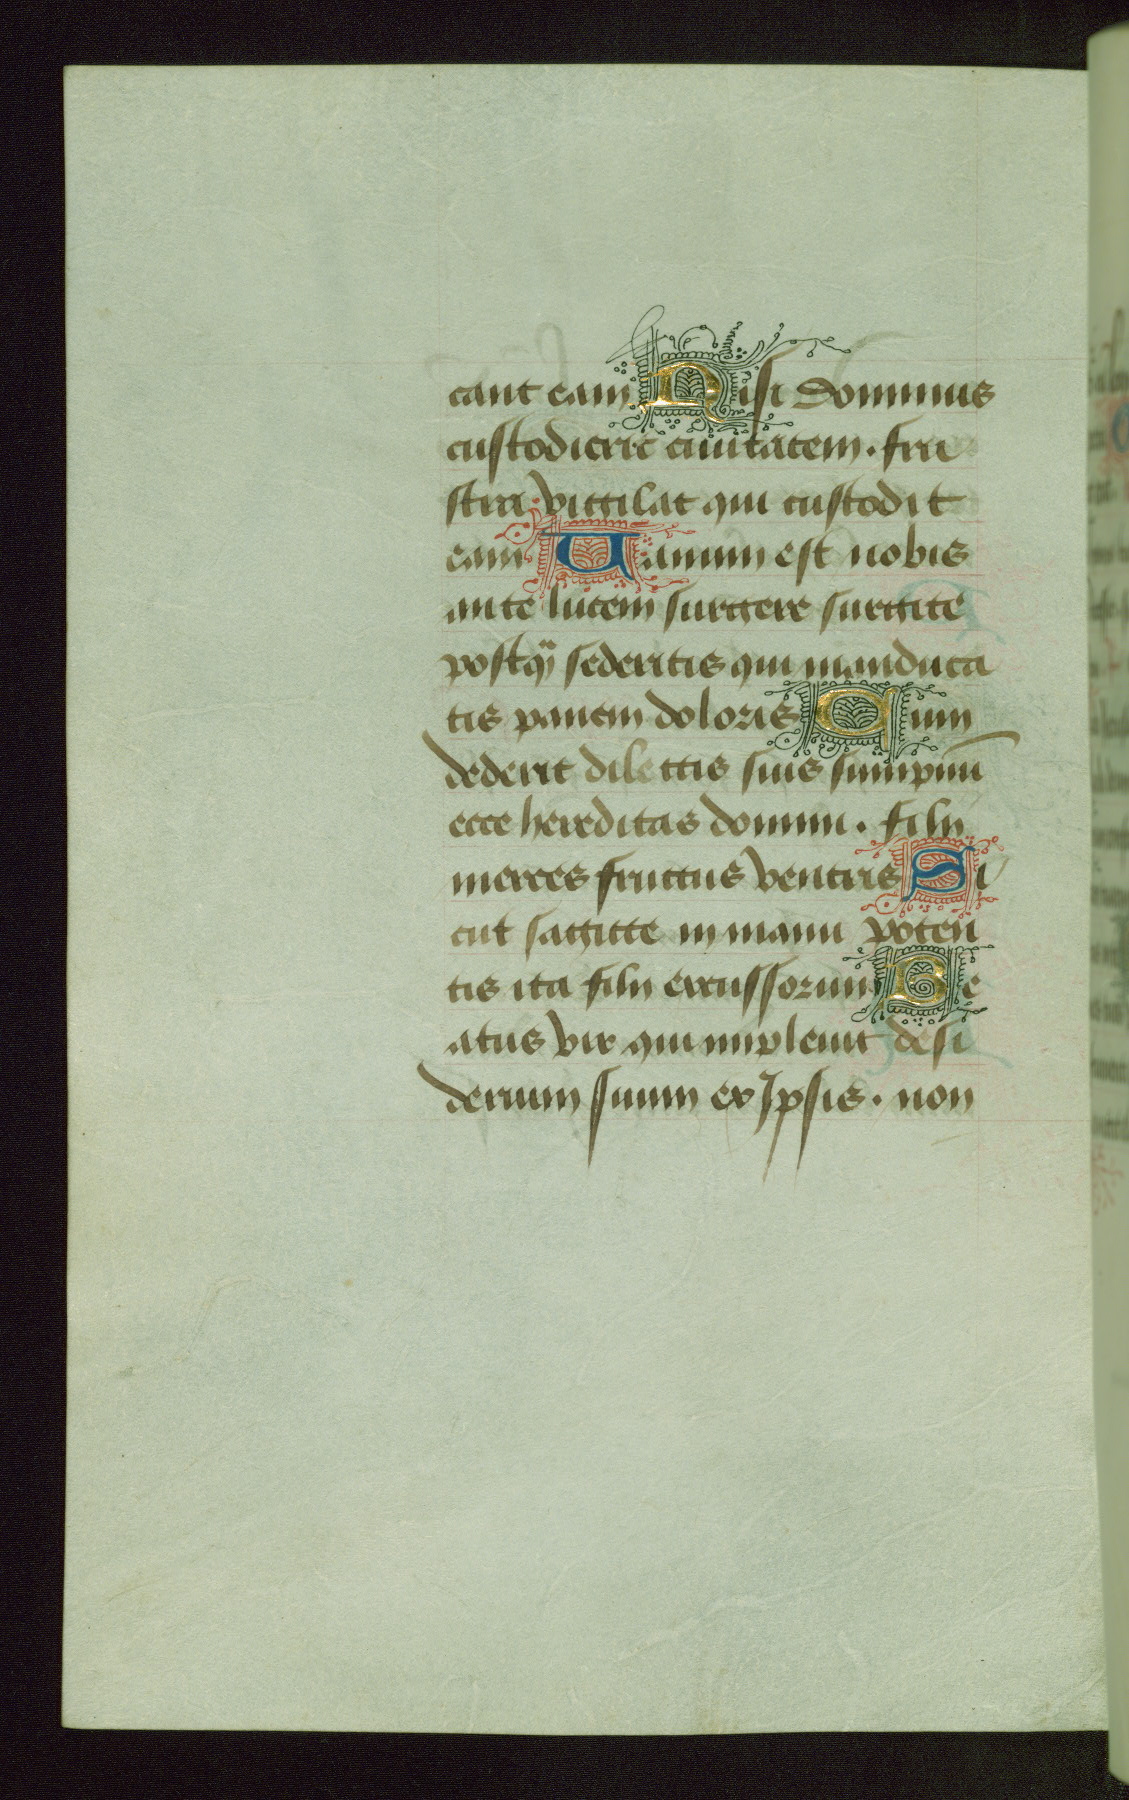 cant eam Nisi dominus
custodierit ciuitatem. fru
stra vigilat qui custodit
eam Uanum est uobis
ante lucem surgere surgite
postq̄ sederitis qui manduca
tis panem doloris Cum
dederit dilectis suis sumpnū
ecce hereditas domini. filii
merces fructus ventris Si
cut sagitte in manu poten
tis ita filii excussorum Be
atus vir qui impleuit desi
derium suum ex Ipsis. non